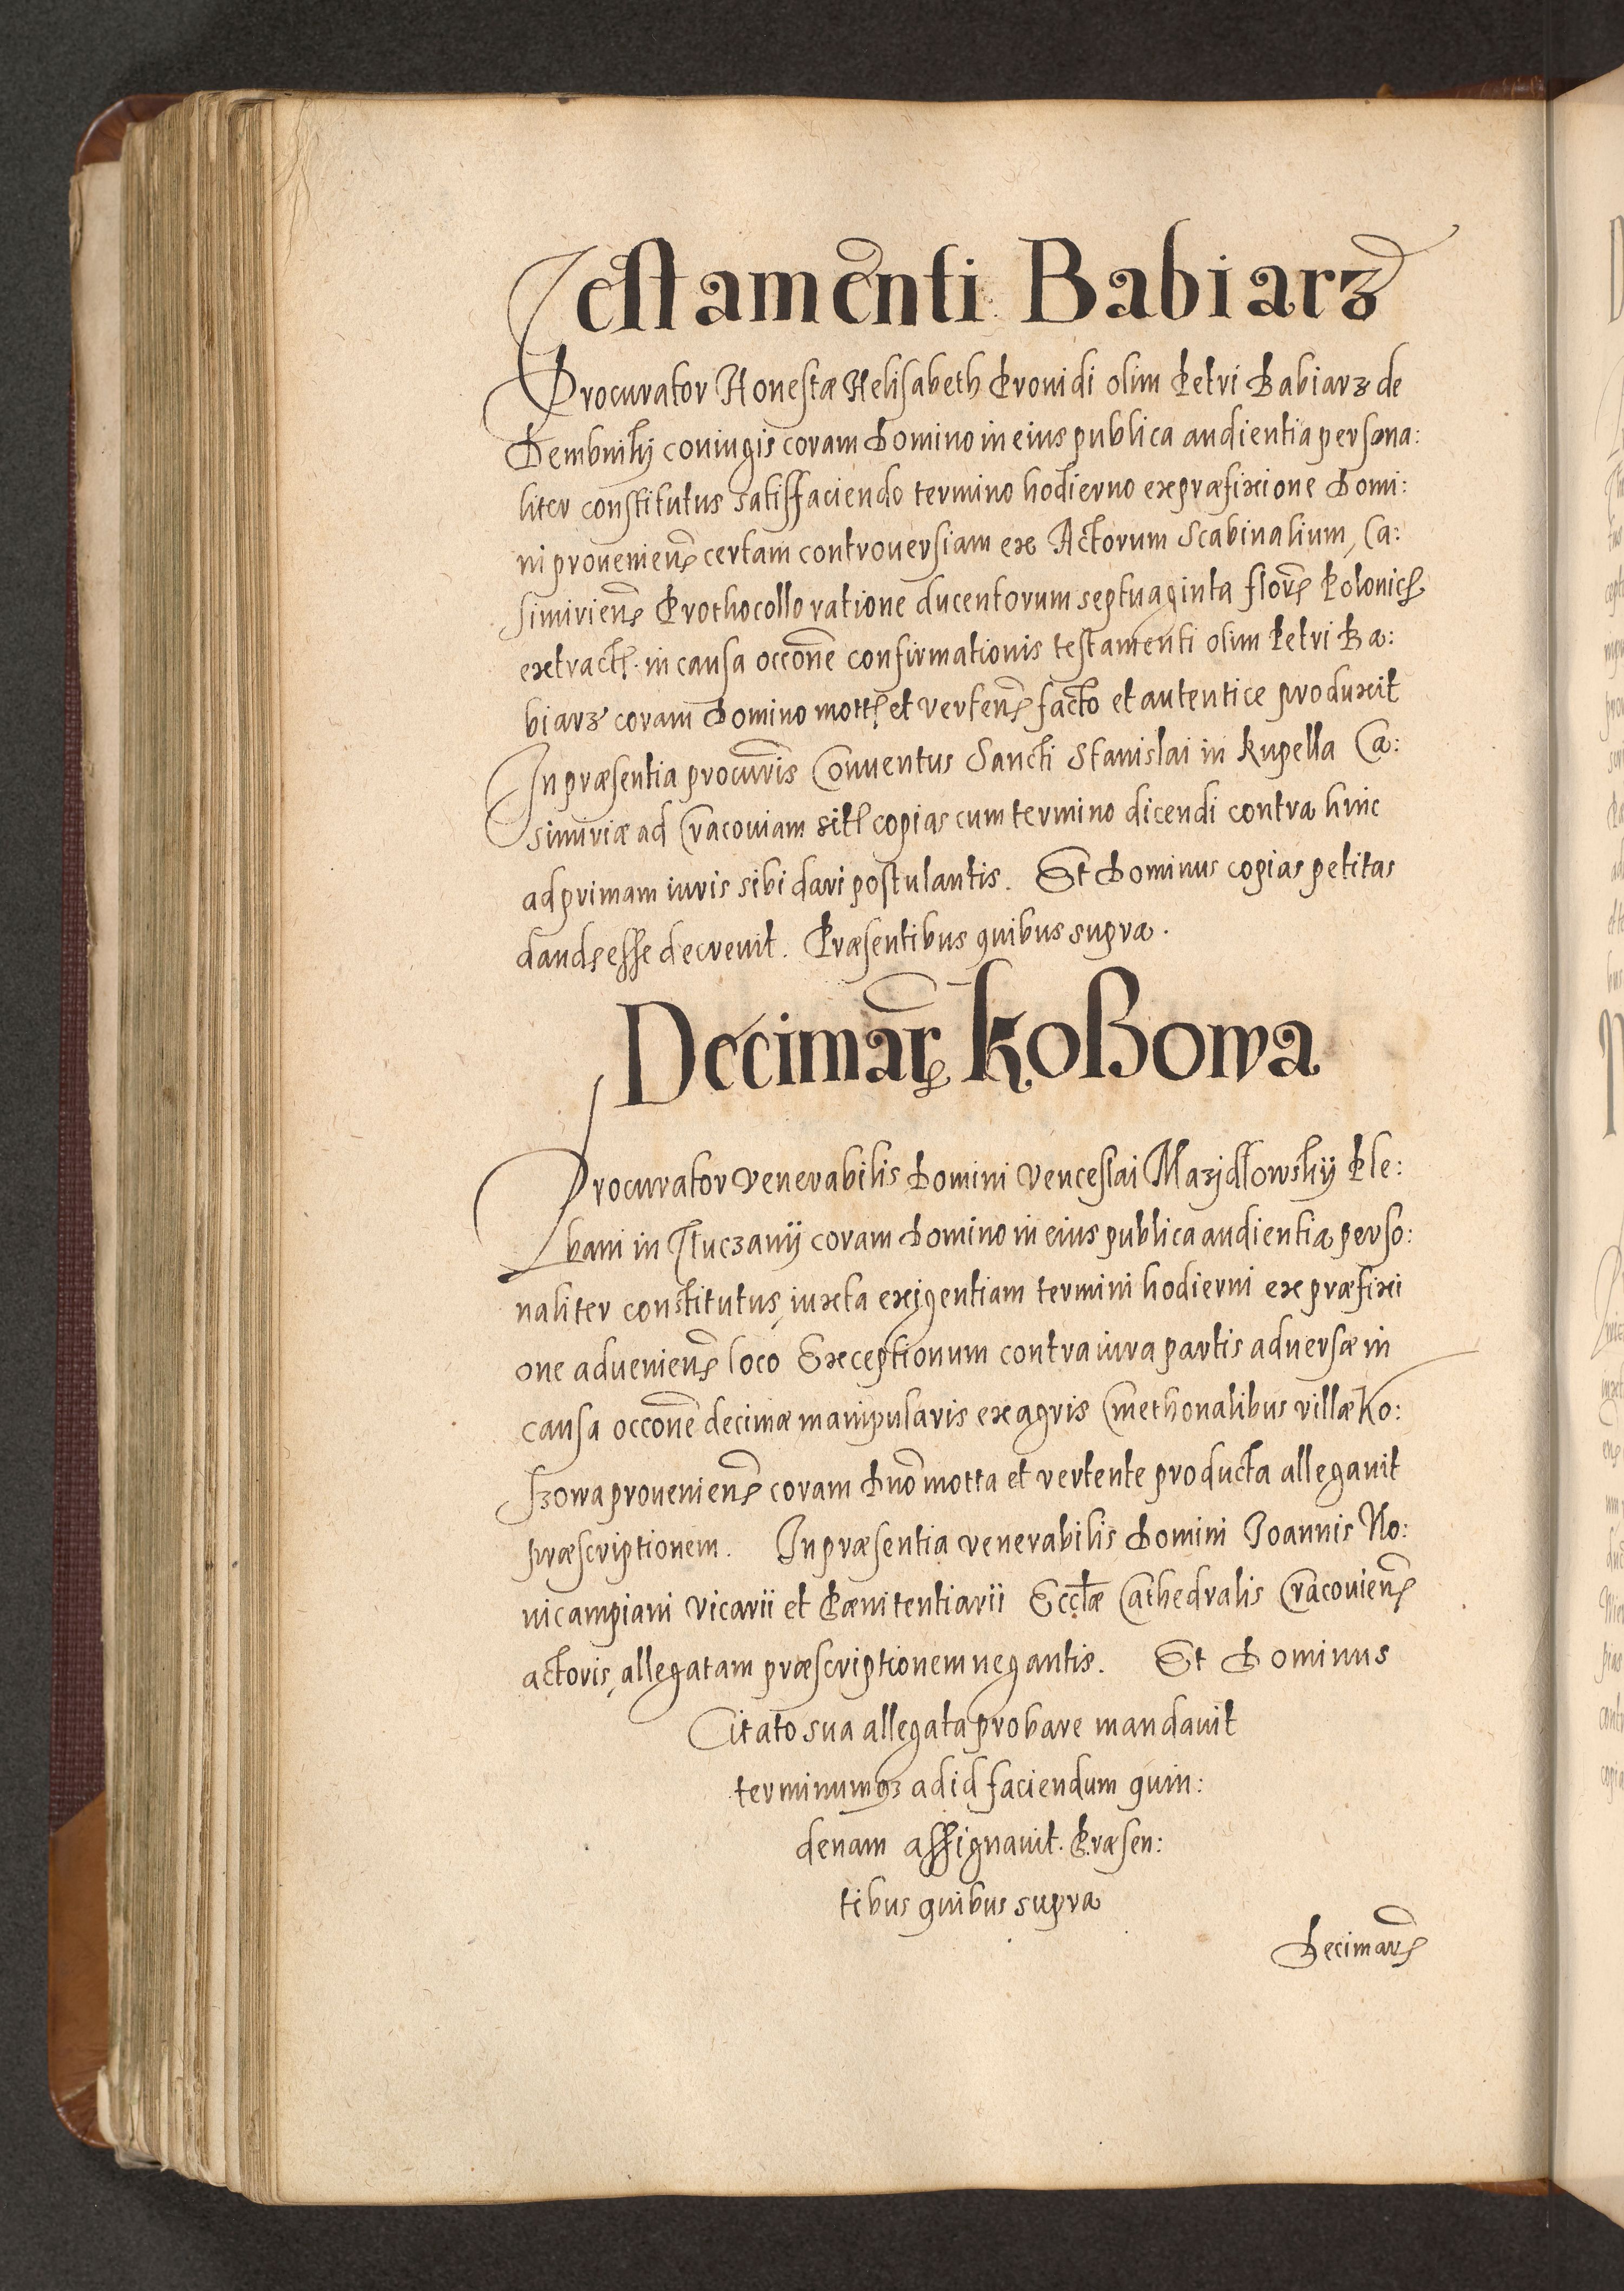 Testamenti Babiarz
Procurator Honestæ Helisabeth Prouidi olim Petri Babiarz de
Dembnikij coniugis coram Domino in eius publica audientia persona:
liter constitutus satisfaciendo termino hodierno ex præfixione Domi:
ni prouenienꝭ certam controuersiam ex Actorum Scabinalium, Ca:
simirienꝭ Prothocollo ratione ducentorum septuaginta florꝭ Polonicꝭ
extractꝭ. in causa occōne confirmationis testamenti olim Petri Ba:
biarz coram Domino mottꝭ et vertenꝭ facto et autentice produxit
In præsentia procuris Conuentus Sancti Stanislai in Rupella Ca:
simiriæ ad Cracouiam sitꝭ copias cum termino dicendi contra hinc
ad primam iuris sibi dari postulantis. Et Dominus copias petitas
dandꝭ esse decreuit. Præsentibus quibus supra.
Decimarꝭ Koßowa
Procurator Venerabilis Domini Venceslai Mazidłowskÿ Ple:
bani in Tłuczanÿ coram Domino in eius publica audientia perso:
naliter constitutus, iuxta exigentiam termini hodierni ex præfixi
one aduenienꝭ loco Exceptionum contra iura partis aduersæ in
causa occōne decimæ manipularis ex agris Cmethonalibus villæ Ko:
szowa prouenienꝭ coram Dnō motta et vertente producta allegauit
præscriptionem. In præsentia venerabilis Domini Joannis No:
uicampiani vicarii et Pænitentiarii Eccłæ Cathedralis Cracouienꝭ
actoris, allegatam præscriptionem negantis. Et Dominus
Citato sua allegata probare mandauit
terminumqꝫ ad id faciendum quin:
denam assignauit. Præsen:
tibus quibus supra
Decimarꝭ